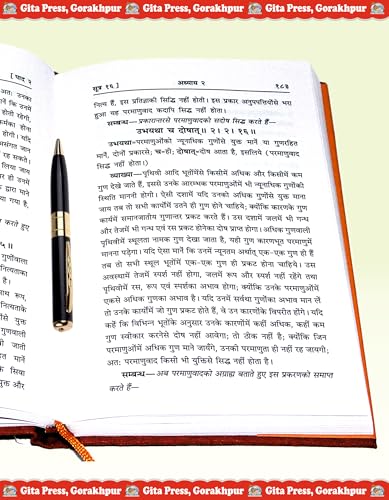 Gita Press, Gorakhpur Gita Press, Gorakhpur Gita Press, Gorakhpur
[ पाद २
सूत्र १६ ] अध्याय २ १८३
नित्य हैं, इस प्रतिज्ञाकी सिद्धि नहीं होती। इस प्रकार अनुपपत्तियोंसे भरा
हुआ यह परमाणुवाद कदापि सिद्ध नहीं होता।
सम्बन्ध—प्रकारान्तरसे परमाणुवादको सदोष सिद्ध करते हैं—
उभयथा च दोषात्॥ २। २। १६॥
उभयथा=परमाणुओंको न्यूनाधिक गुणोंसे युक्त मानें या गुणरहित
मानें, दोनों प्रकारसे; च=ही; दोषात्=दोष आता है, इसलिये (परमाणुवाद
सिद्ध नहीं होता)।
व्याख्या—पृथिवी आदि भूतोंमेंसे किसीमें अधिक और किसीमें कम
गुण देखे जाते हैं, इससे उनके आरम्भक परमाणुओंमें भी न्यूनाधिक गुणोंकी
स्थिति माननी होगी। ऐसी दशामें यदि उनको अधिक गुणोंसे युक्त माना
जाय तब तो सभी कार्योंमें उतने ही गुण होने चाहिये; क्योंकि कारणके गुण
कार्यमें समानजातीय गुणान्तर प्रकट करते हैं। उस दशामें जलमें भी गन्ध
और तेजमें भी गन्ध एवं रस प्रकट होनेका दोष प्राप्त होगा। अधिक गुणवाली
पृथिवीमें स्थूलता नामक गुण देखा जाता है, यही गुण कारणभूत परमाणुमें
मानना पड़ेगा। यदि ऐसा मानें कि उनमें न्यूनतम अर्थात् एक-एक गुण ही हैं
तब तो सभी स्थूल भूतोंमें एक-एक गुण ही प्रकट होना चाहिये। उस
अवस्थामें तेजमें स्पर्श नहीं होगा, जलमें रूप और स्पर्श नहीं रहेंगे तथा
पृथिवीमें रस, रूप एवं स्पर्शका अभाव होगा; क्योंकि उनके परमाणुओंमें
एकसे अधिक गुणका अभाव है। यदि उनमें सर्वथा गुणोंका अभाव मान लें
तो उनके कार्योंमें जो गुण प्रकट होते हैं, वे उन कारणोंके विपरीत होंगे। यदि
कहें कि विभिन्न भूतोंके अनुसार उनके कारणोंमें कहीं अधिक, कहीं कम
गुण स्वीकार करनेसे दोष नहीं आवेगा; तो ठीक नहीं है; क्योंकि जिन
परमाणुओंमें अधिक गुण माने जायँगे, उनकी परमाणुता ही नहीं रह जायगी;
अतः परमाणुवाद किसी भी युक्तिसे सिद्ध नहीं होता है।
सम्बन्ध—अब परमाणुवादको अग्राह्य बताते हुए इस प्रकरणको समाप्त
करते हैं—
Gita Press, Gorakhpur Gita Press, Gorakhpur Gita Press, Gorakhpur